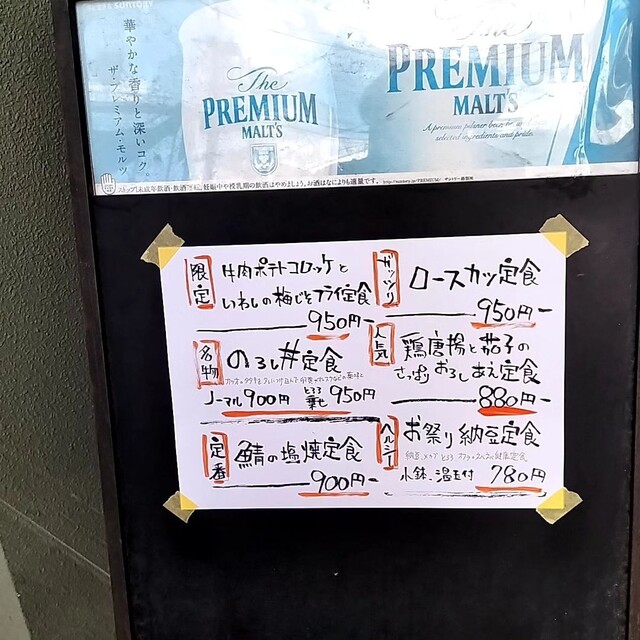 華やかな香りと深いコク。
ザ・プレミアム・モルツ
The
PREMIUM
MALT'S
The
PREMIUM
MALT'S
A premium pilsner beer
selected ingredients and pride.
ストップ!未成年飲酒・飲酒運転。妊娠中や授乳期の飲酒はやめましょう。お酒はなによりも適量です。
限定
牛肉ポテトコロッケと
いわしの梅じそフライ定食
950円ー
名物
のろし丼定食
ノーマル900円 950円
定番
鯖の塩焼定食
900円ー
ガッツリ
ロースカツ定食
950円ー
人気
鶏唐揚と茄子の
さっぱりおろしあえ定食
880円ー
ヘルシー
お祭り納豆定食
小鉢、温玉付 780円